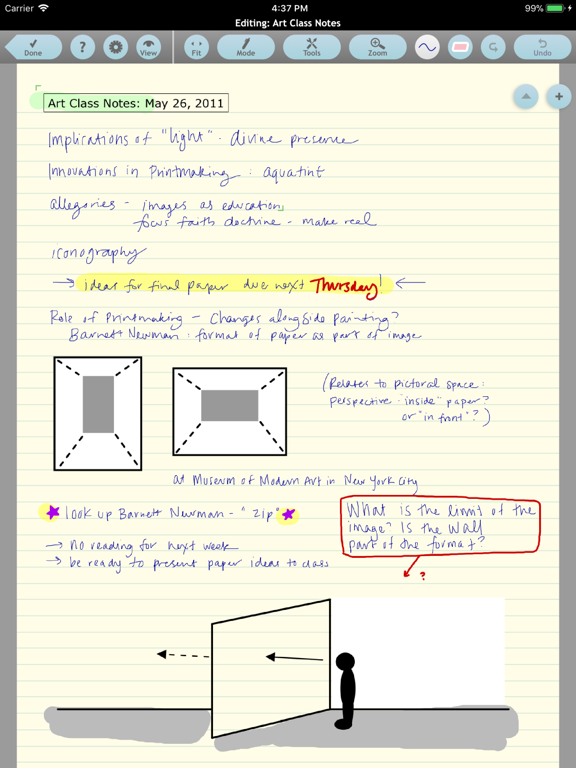 Carrier 4:37 PM 99%
Editing: Art Class Notes
Done ? View Fit Mode Tools Zoom Undo
Art Class Notes: May 26, 2011
Implications of "light" - divine presence
Innovations in Printmaking : aquatint
allegories - images as education
focus faith doctrine - make real
iconography
→ ideas for final paper due next Thursday! ←
Role of Printmaking - Changes alongside painting?
Barnett Newman : format of paper as part of image
(Relates to pictoral space:
perspective "inside" paper?
or "in front"?)
at Museum of Modern Art in New York City
★ look up Barnett Newman - "zip" ★
What is the limit of the
image? Is the wall
part of the format?
→ no reading for next week
→ be ready to present paper ideas to class
?